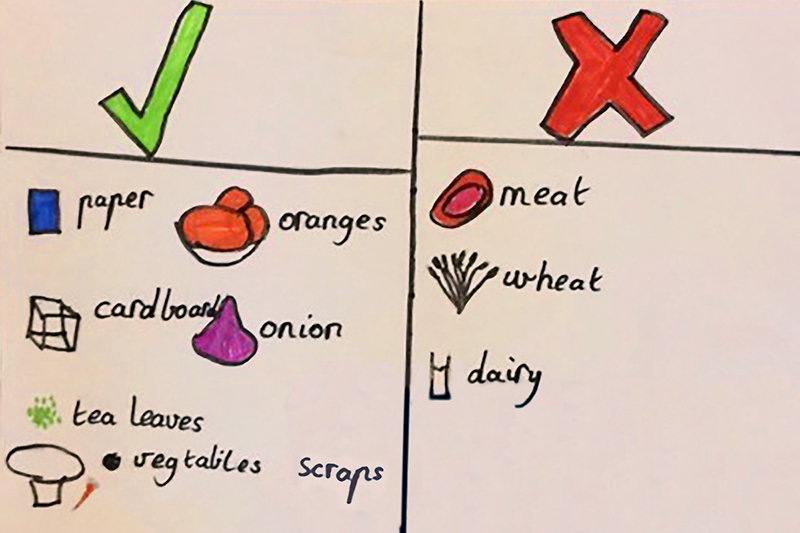 paper
oranges
cardboard
onion
tea leaves
vegtables scraps
meat
wheat
dairy